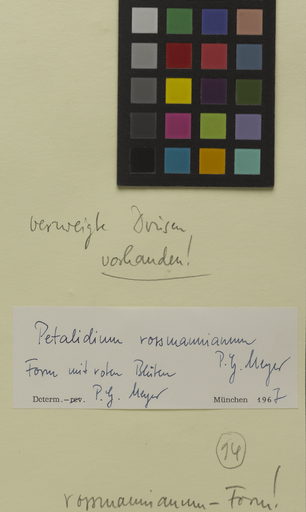 verzweigte Drüsen
vorhanden!
Petalidium rossmannianum
P.G. Meyer
Form mit roten Blüten
Determ.-rev. P.G. Meyer München 1967
14
rossmannianum - Form!